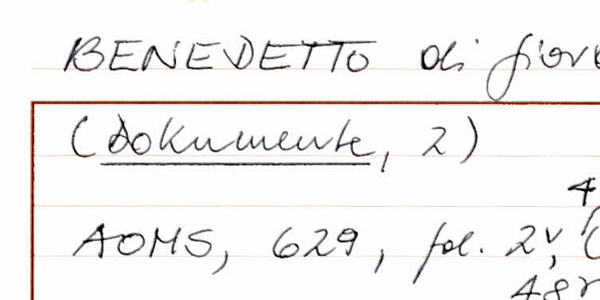 BENEDETTO di
(Dokumente, 2)
AOMS, 629, fol. 2v,